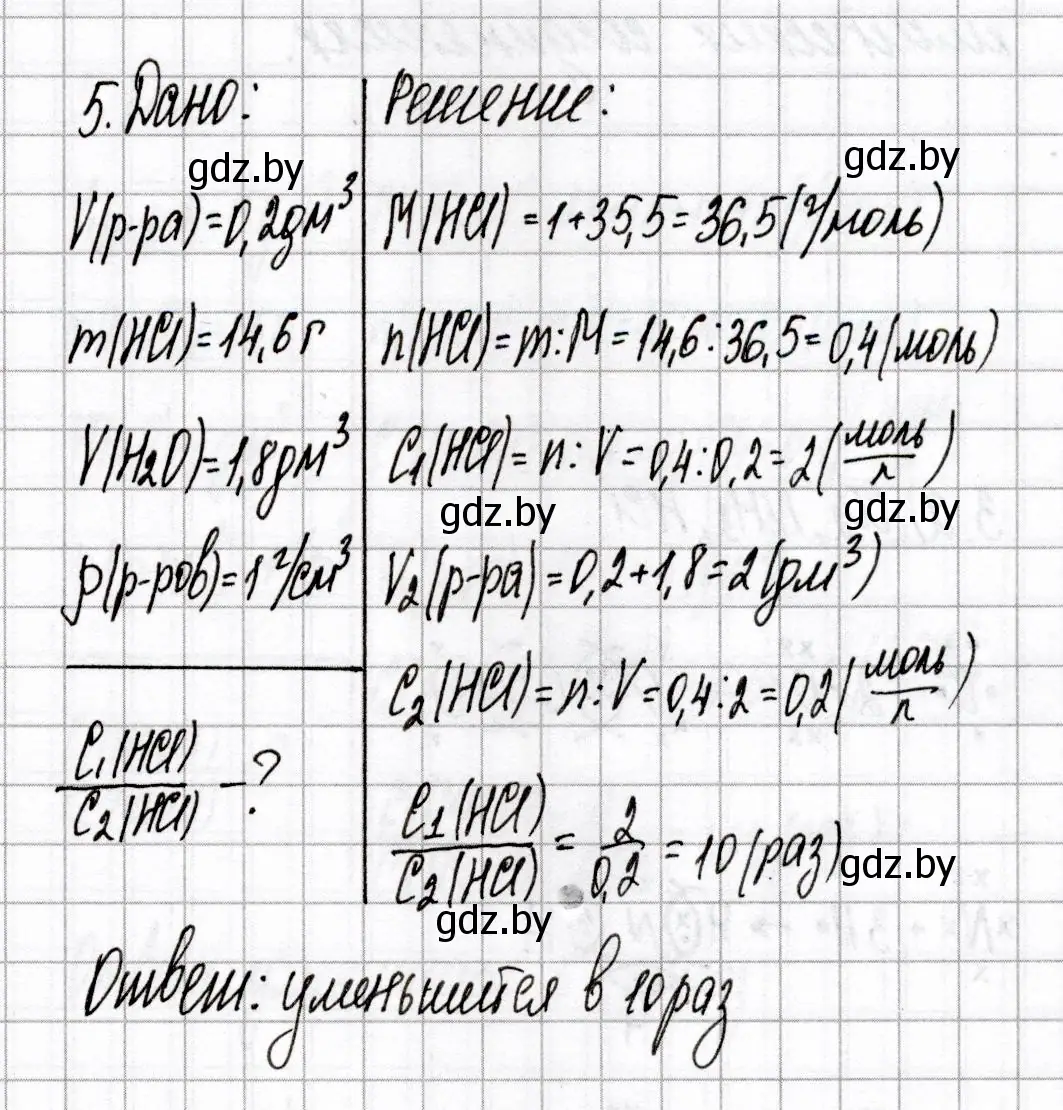 5. Дано:
V(р-ра)=0,2дм³
m(HCl)=14,6г
V(H₂O)=1,8дм³
ρ(р-ров)=1г/см³
C₁(HCl)/C₂(HCl) -?
Решение:
M(HCl)=1+35,5=36,5(г/моль)
n(HCl)=m:M=14,6:36,5=0,4(моль)
C₁(HCl)=n:V=0,4:0,2=2(моль/л)
V₂(р-ра)=0,2+1,8=2(дм³)
C₂(HCl)=n:V=0,4:2=0,2(моль/л)
C₁(HCl)/C₂(HCl)=2/0,2=10(раз)
Ответ: уменьшится в 10 раз
gdz.by
gdz.by
gdz.by
gdz.by
gdz.by
gdz.by